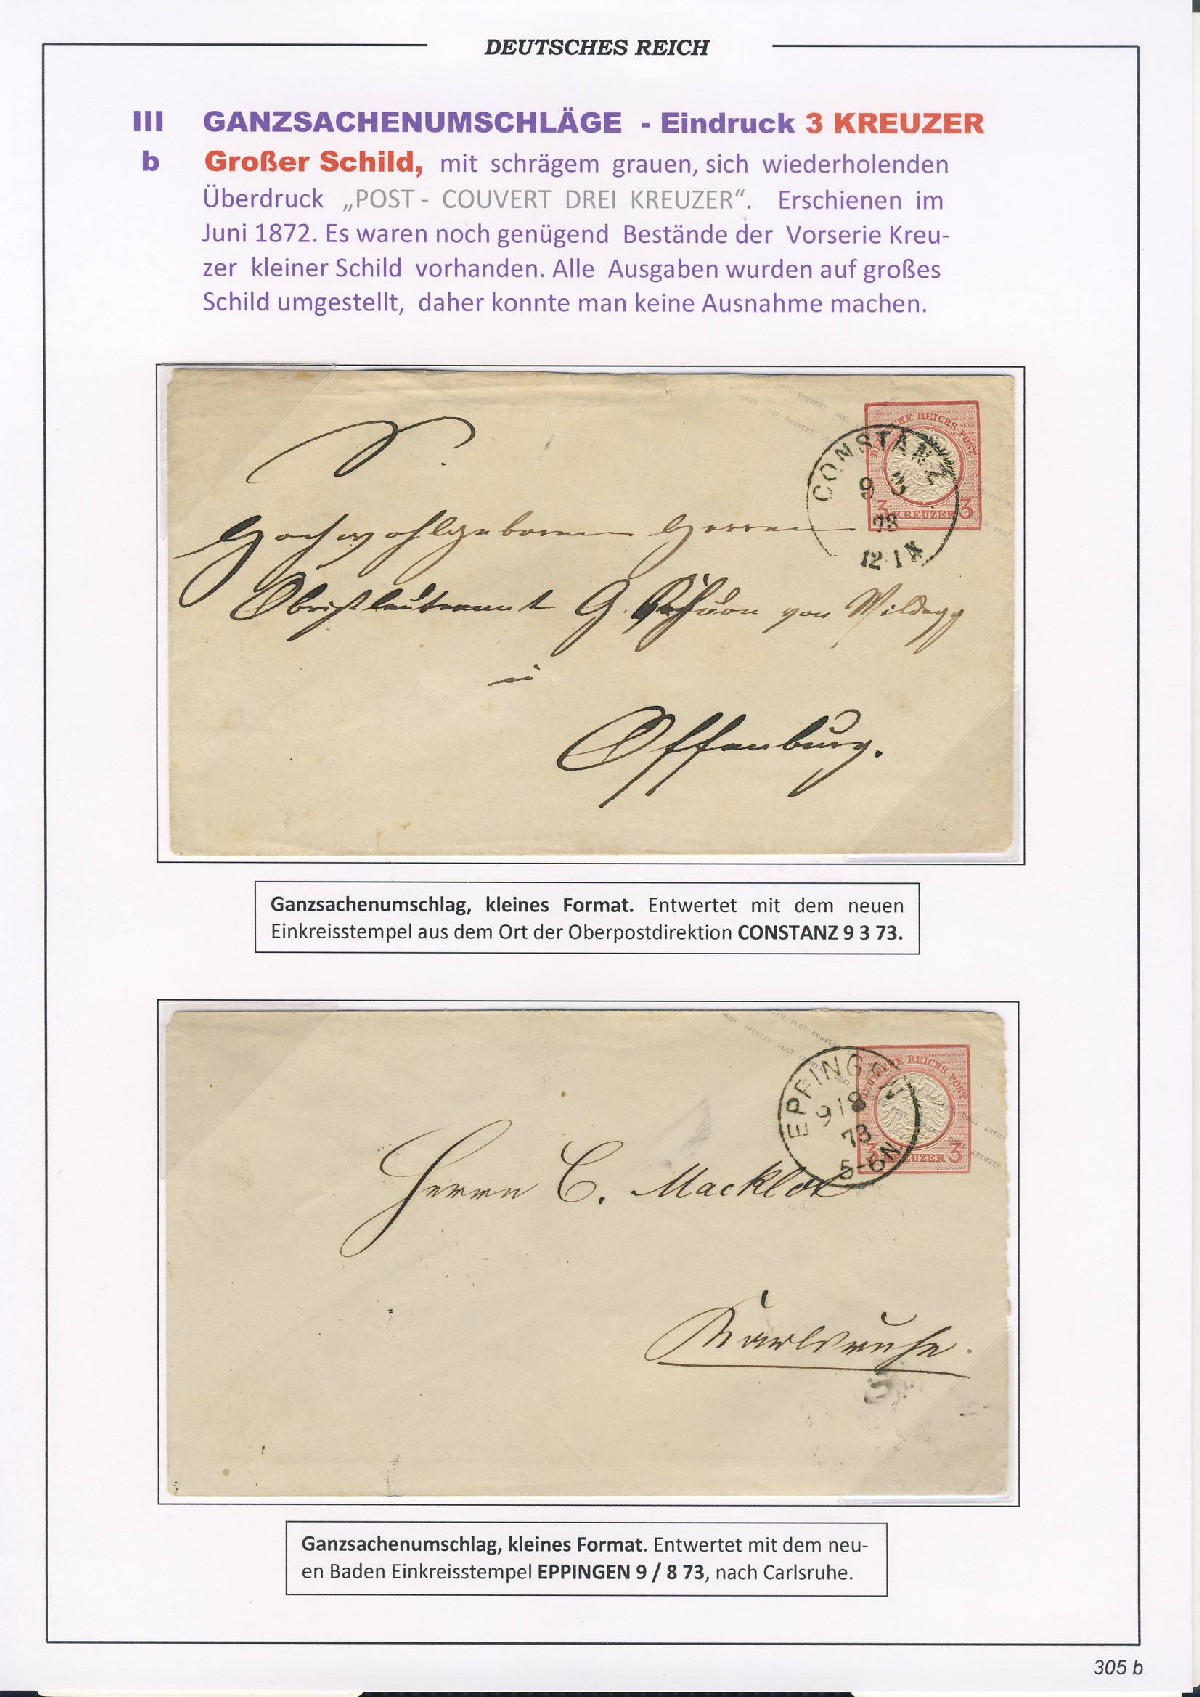 DEUTSCHES REICH
III GANZSACHENUMSCHLÄGE - Eindruck 3 KREUZER
b Großer Schild, mit schrägem grauen, sich wiederholenden
Überdruck „POST - COUVERT DREI KREUZER“. Erschienen im
Juni 1872. Es waren noch genügend Bestände der Vorserie Kreu-
zer kleiner Schild vorhanden. Alle Ausgaben wurden auf großes
Schild umgestellt, daher konnte man keine Ausnahme machen.
REICHS POST
3 KREUZER 3
CONSTANZ
9 3
73
12-1 N
Hochwohlgeboren Herren
Obristleutenant G. von Wildegg
in
Offenburg.
Ganzsachenumschlag, kleines Format. Entwertet mit dem neuen
Einkreisstempel aus dem Ort der Oberpostdirektion CONSTANZ 9 3 73.
REICHS POST
3 KREUZER 3
EPPINGEN
9 / 8
73
5-6 N
Herrn C. Macklot
Karlsruhe.
Ganzsachenumschlag, kleines Format. Entwertet mit dem neu-
en Baden Einkreisstempel EPPINGEN 9 / 8 73, nach Carlsruhe.
305 b